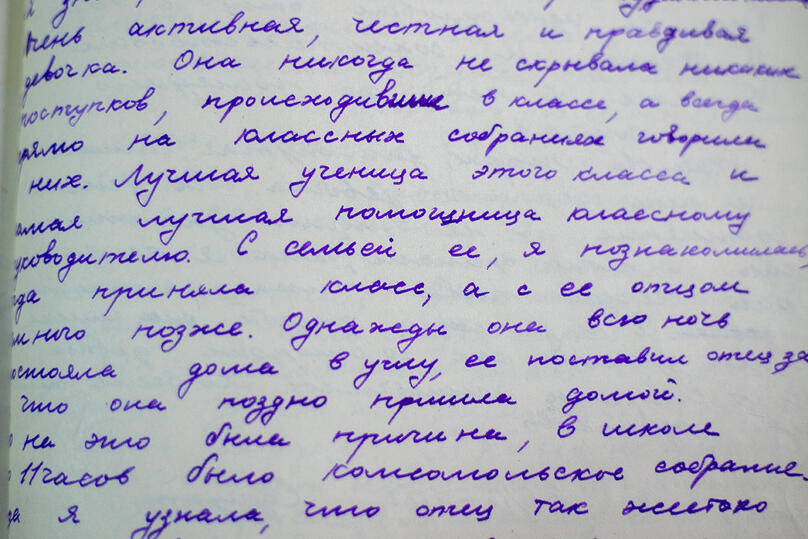 очень активная, честная и правдивая
девочка. Она никогда не скрывала никаких
поступков, происходивших в классе, а всегда
прямо на классных собраниях говорили
них. Лучшая ученица этого класса и
амая лучшая помощница классному
уководителю. С семьей ее, я познакомилась,
гда приняла класс, а с ее отцом
много позже. Однажды она всю ночь
остояла дома в углу, ее поставил отец за
что она поздно пришла домой.
о на это была причина, в школе
о 11 часов было комсомольское собрание.
да я узнала, что отец так жестоко